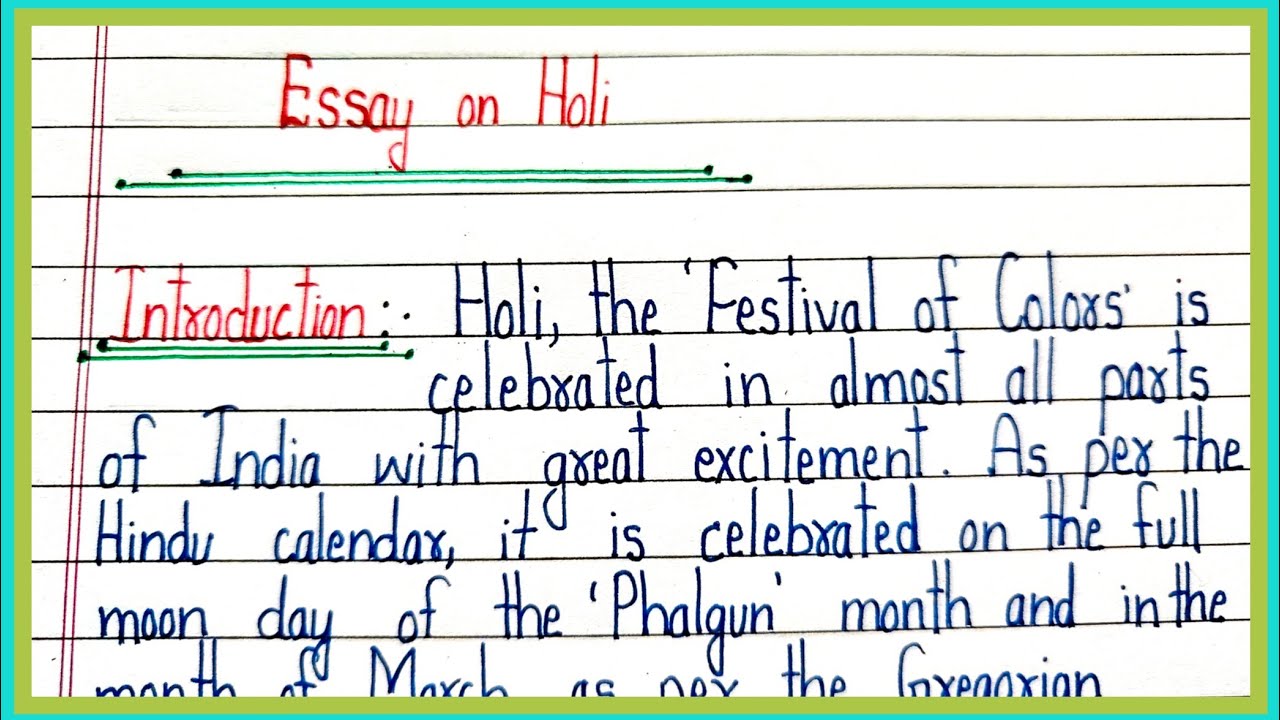 Essay on Holi
Introduction:. Holi, the 'Festival of Colors' is
celebrated in almost all parts
of India with great excitement. As per the
Hindu calendar, it is celebrated on the full
moon day of the 'Phalgun' month and in the
month of March as per the Gregorian